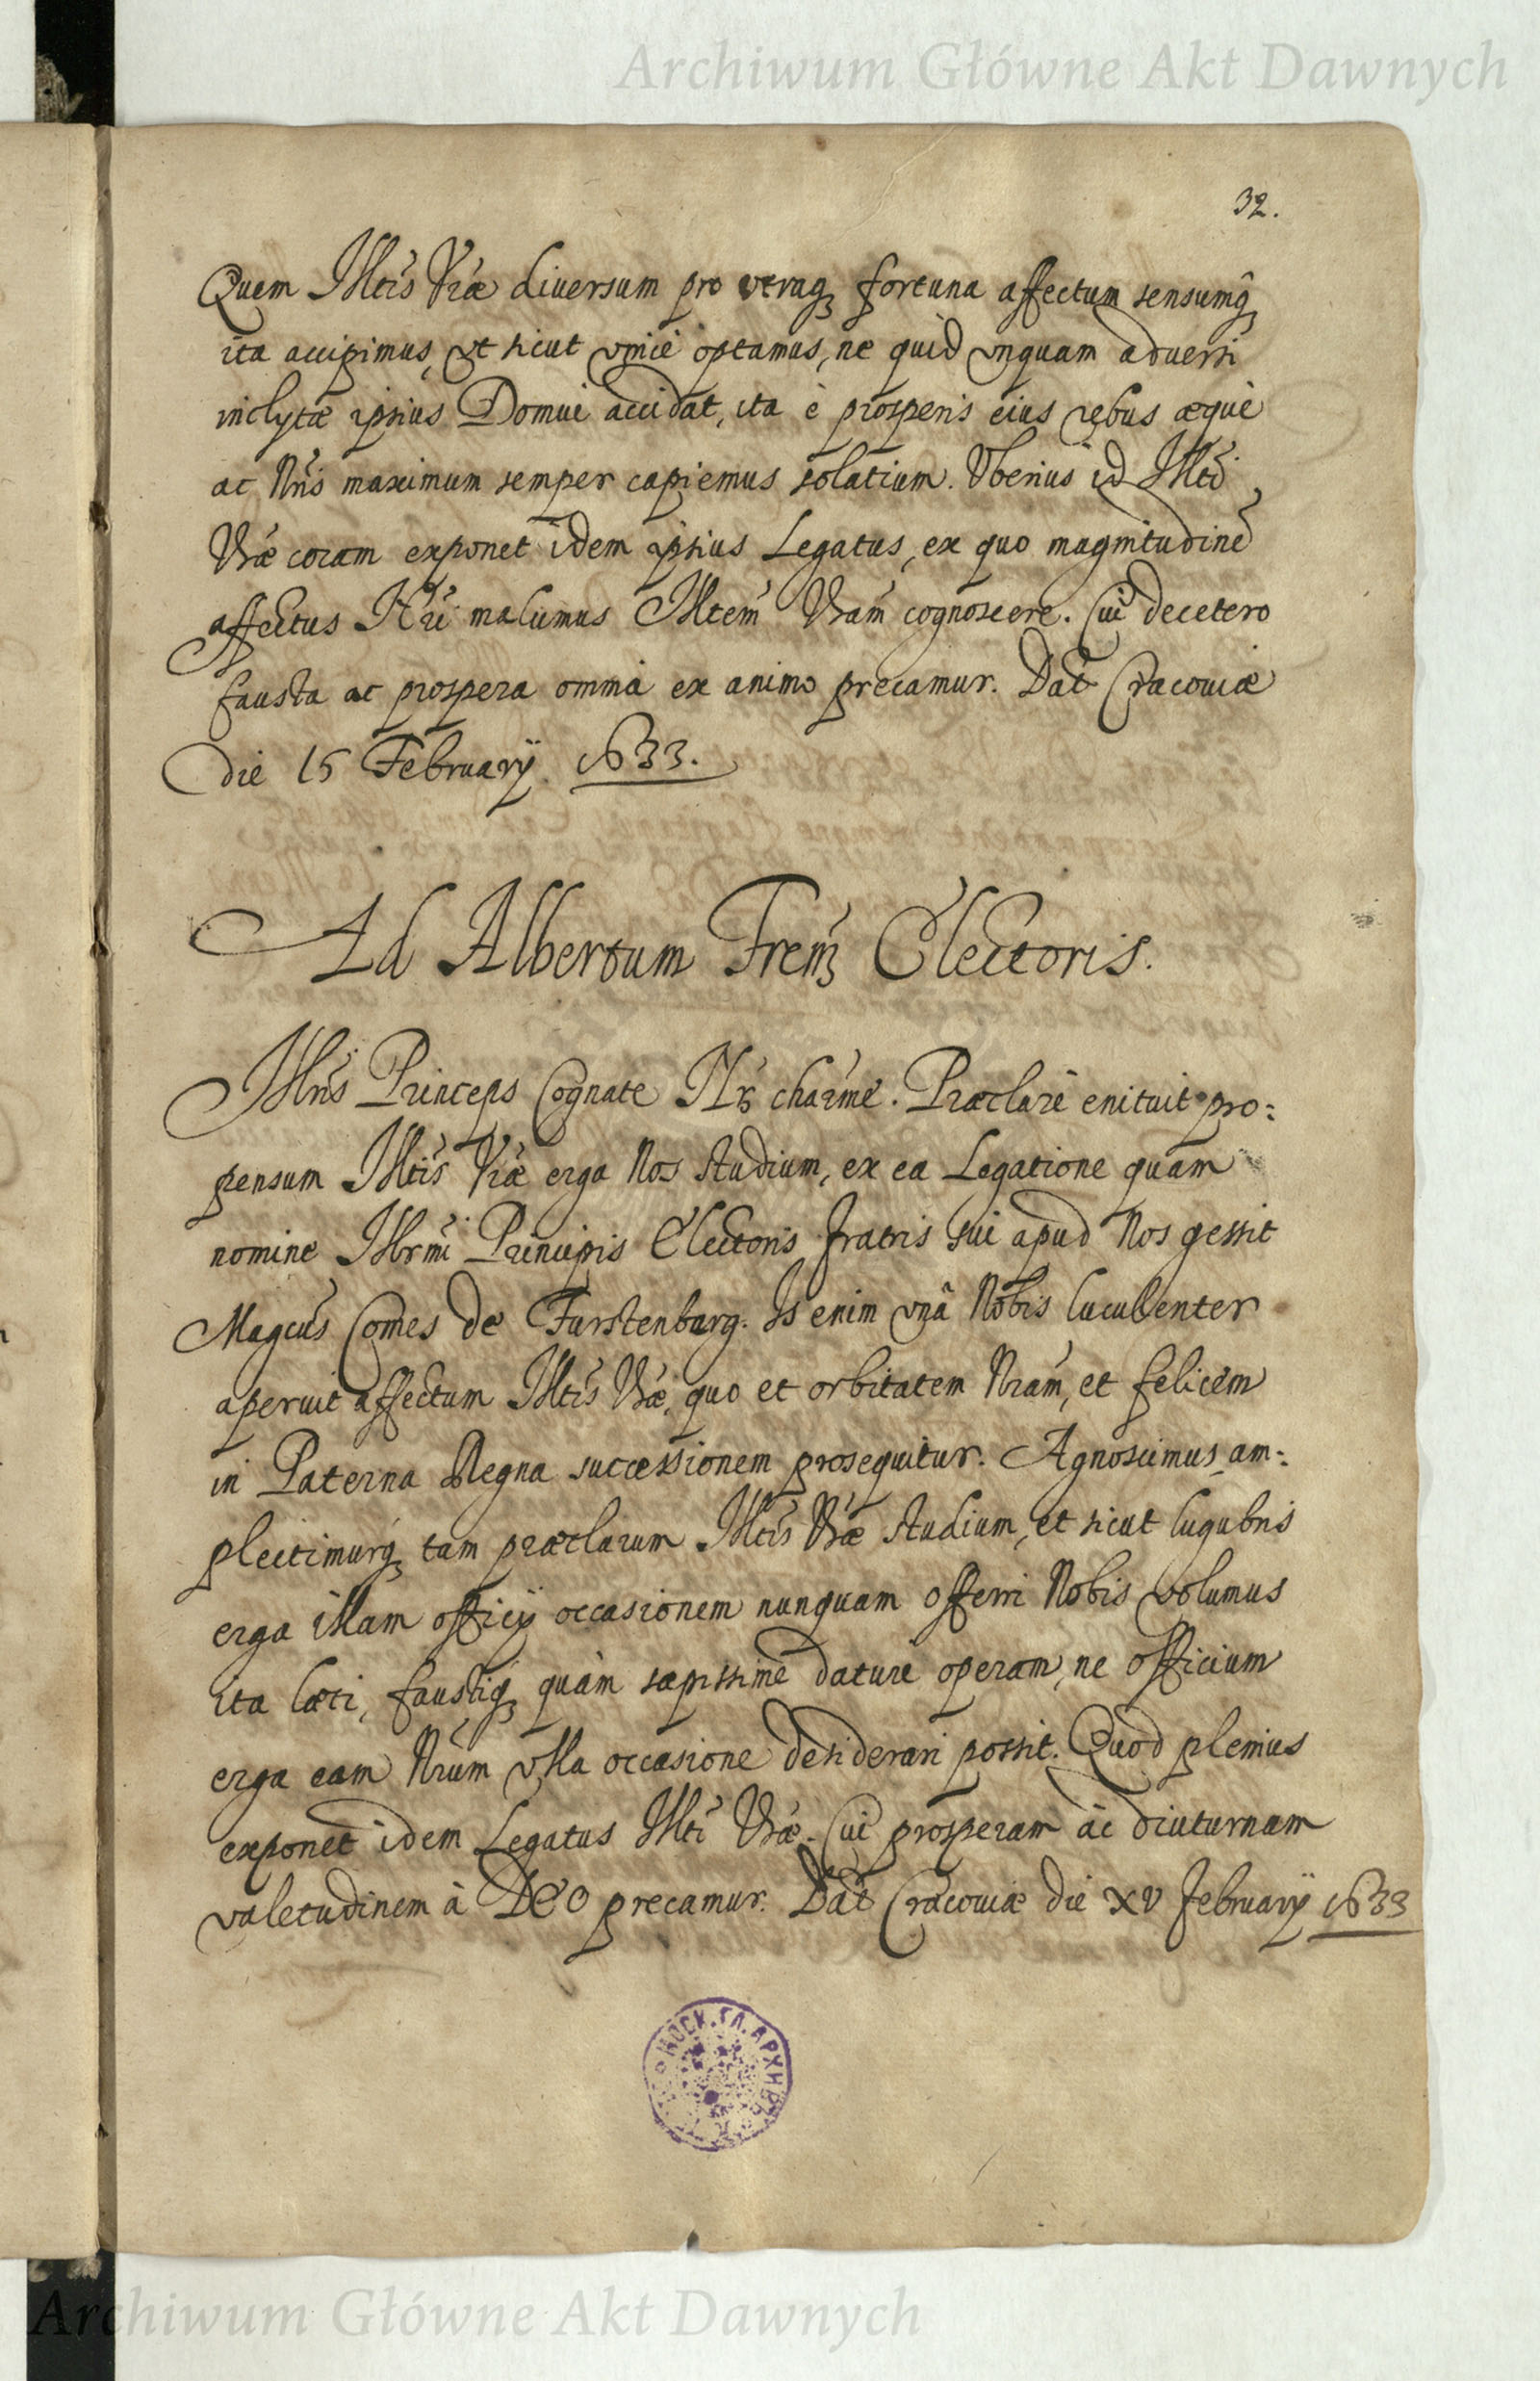 Archiwum Główne Akt Dawnych
32.
Quem Illtis Vrae diversum pro utraq; fortuna affectum sensumq;
ita accipimus, ut sicut unicè optamus, ne quid unquam adversi
inclytae ipsius Domui accidat, ita è prosperis eius rebus aequè
ac Nris maximum semper capiemus solatium. Uberius id Illti
Vrae coram exponet idem ipsius Legatus, ex quo magnitudinē
affectus Nri malumus Illtem Vram cognoscere. Cui decetero
fausta ac prospera omnia ex animo precamur. Dat Cracoviae
die 15 February 1633.
Ad Albertum Frem Electoris.
Illris Princeps Cognate Nr charme. Praeclarè enituit pro:
pensum Illtis Vrae erga Nos studium, ex ea Legatione quam
nomine Illrmi Principis Electoris fratris sui apud Nos gessit
Magcus Comes de Furstenbarg. Is enim unà Nobis luculenter
aperuit affectum Illtis Vrae, quo et orbitatem Nram, et felicem
in Paterna Regna successionem prosequitur. Agnoscimus, am:
plectimurq; tam praeclarum Illtis Vrae studium, et sicut lugubris
erga illam officij occasionem nunquam offerri Nobis volumus
ita laeti, faustiq; quàm saepissimè daturi operam, ne officium
erga eam Nrum ulla occasione desiderari possit. Quod plenius
exponet idem Legatus Illti Vrae. Cui prosperam ac diuturnam
valetudinem à DEO precamur. Dat Cracoviae die XV February 1633
МОСК. ГЛ. АРХИВЪ
Archiwum Główne Akt Dawnych